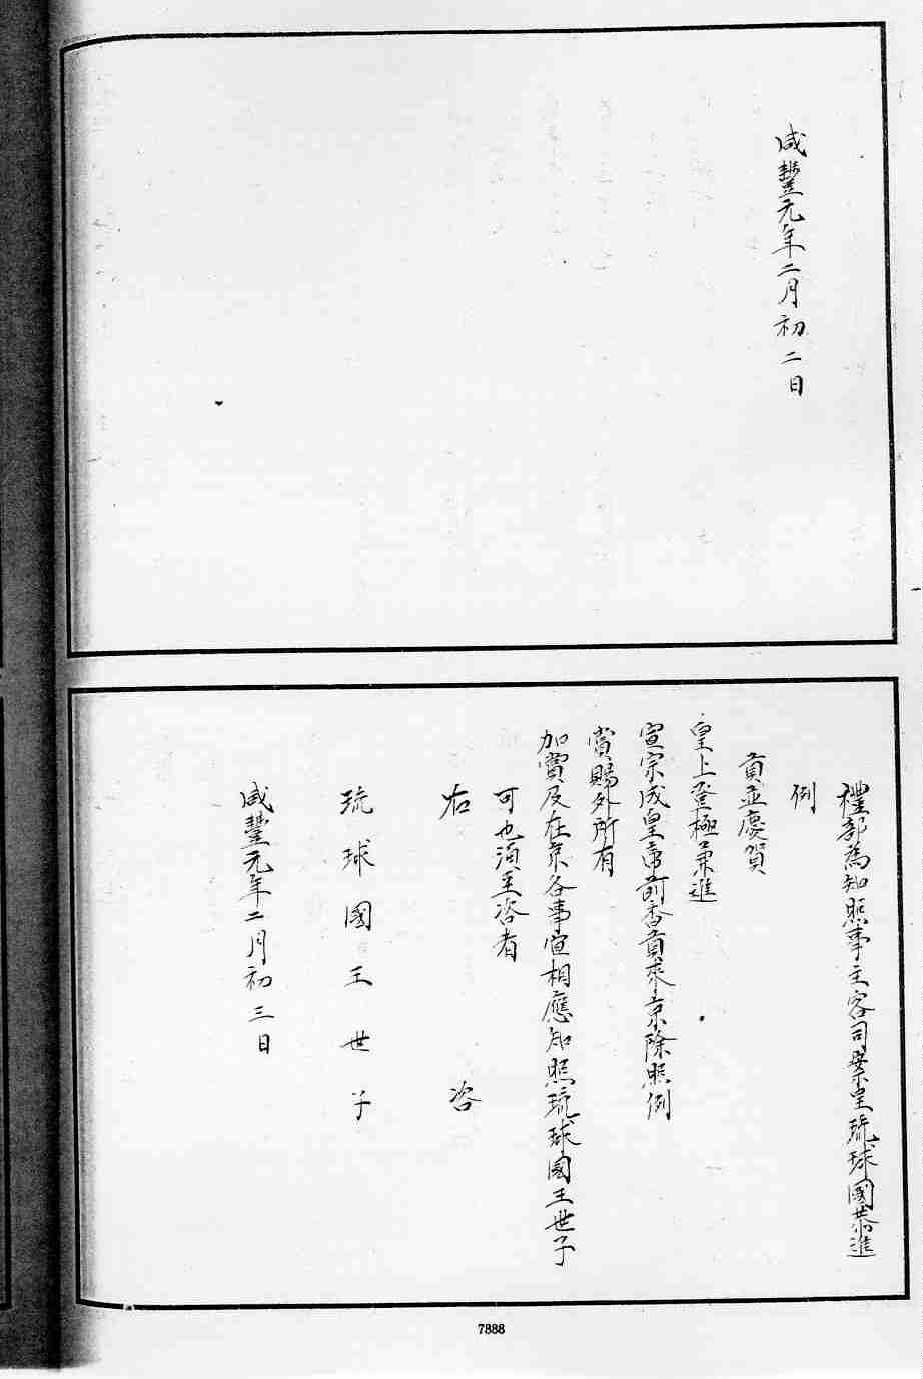 咸豐元年二月初二日
禮部為知照事主客司案呈琉球國恭進
例
貢並慶賀
皇上登極兼進
宣宗成皇帝前香貢來京除照例
賞賜外所有
加賞及在京各事宜相應知照琉球國王世子
可也須至咨者
右 咨
琉球國王世子
咸豐元年二月初三日
7888